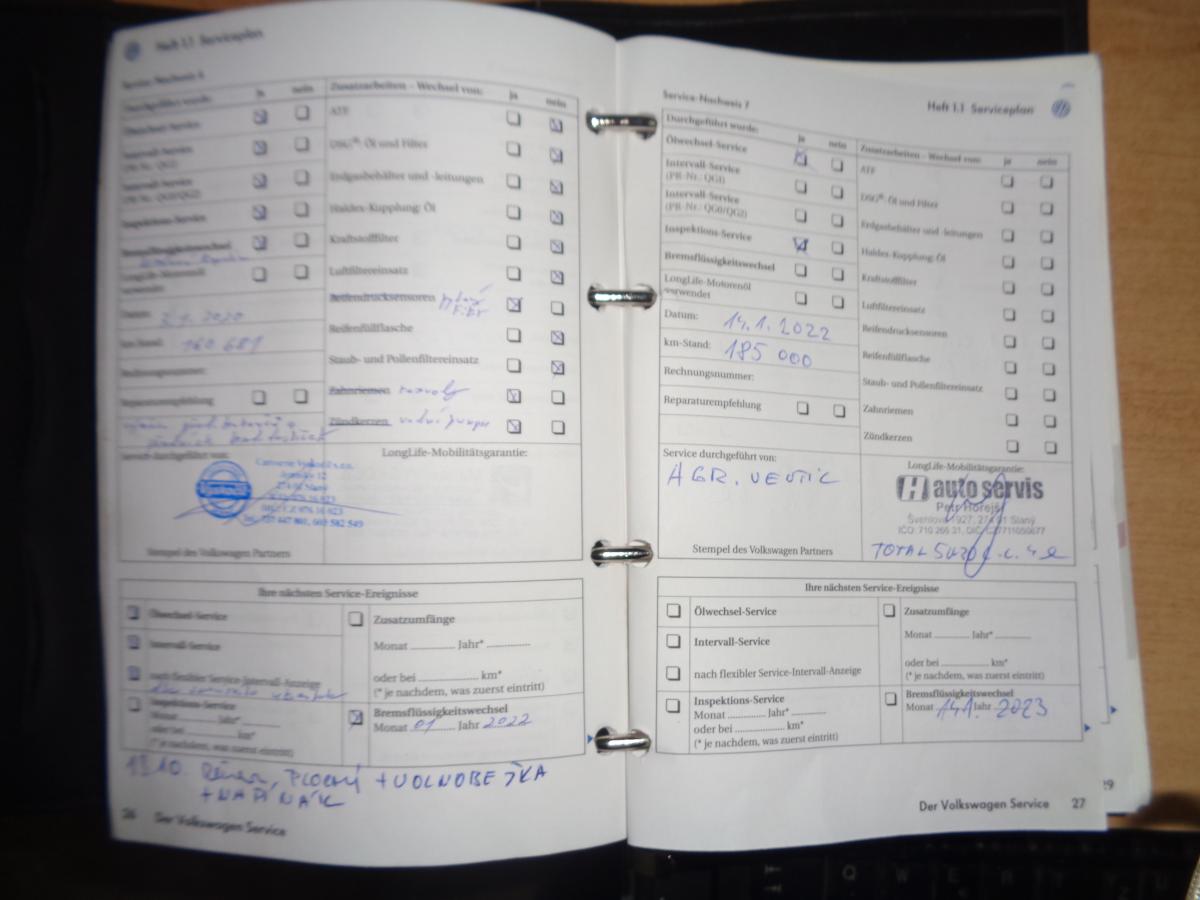 Heft 1.1 Serviceplan
Service-Nachweis 6
Durchgeführt wurde:
ja
nein
Ölwechsel-Service
Intervall-Service
(PR-Nr.: QG1)
Intervall-Service
(PR-Nr.: QG0/QG2)
Inspektions-Service
Bremsflüssigkeitswechsel
LongLife-Motorenöl
verwendet
Datum:
2020
km-Stand: 160 681
Rechnungsnummer:
Reparaturempfehlung
Service durchgeführt von:
274 01 Slaný
602 582 549
Stempel des Volkswagen Partners
Zusatzarbeiten – Wechsel von:
ja
nein
ATF
DSG®: Öl und Filter
Erdgasbehälter und -leitungen
Haldex-Kupplung: Öl
Kraftstofffilter
Luftfiltereinsatz
Reifendrucksensoren
Reifenfüllflasche
Staub- und Pollenfiltereinsatz
Zahnriemen
Zündkerzen
LongLife-Mobilitätsgarantie:
Ihre nächsten Service-Ereignisse
Ölwechsel-Service
Intervall-Service
nach flexibler Service-Intervall-Anzeige
Inspektions-Service
Monat Jahr*
oder bei km*
(* je nachdem, was zuerst eintritt)
Zusatzumfänge
Monat Jahr*
oder bei km*
(* je nachdem, was zuerst eintritt)
Bremsflüssigkeitswechsel
Monat 01 Jahr 2022
+ VOLNOBEŽKA
+ NAPÍNÁK
26 Der Volkswagen Service
Service-Nachweis 7
Heft 1.1 Serviceplan
Durchgeführt wurde:
ja
nein
Ölwechsel-Service
Intervall-Service
(PR-Nr.: QG1)
Intervall-Service
(PR-Nr.: QG0/QG2)
Inspektions-Service
Bremsflüssigkeitswechsel
LongLife-Motorenöl
verwendet
Datum: 14.1.2022
km-Stand: 185 000
Rechnungsnummer:
Reparaturempfehlung
Service durchgeführt von:
AGR. VENTIL
Stempel des Volkswagen Partners
Zusatzarbeiten – Wechsel von:
ja
nein
ATF
DSG®: Öl und Filter
Erdgasbehälter und -leitungen
Haldex-Kupplung: Öl
Kraftstofffilter
Luftfiltereinsatz
Reifendrucksensoren
Reifenfüllflasche
Staub- und Pollenfiltereinsatz
Zahnriemen
Zündkerzen
LongLife-Mobilitätsgarantie:
H auto servis
Petr Hořejší
1927, 274 01 Slaný
TOTAL 5W30
Ihre nächsten Service-Ereignisse
Ölwechsel-Service
Intervall-Service
nach flexibler Service-Intervall-Anzeige
Inspektions-Service
Monat Jahr*
oder bei km*
(* je nachdem, was zuerst eintritt)
Zusatzumfänge
Monat Jahr*
oder bei km*
(* je nachdem, was zuerst eintritt)
Bremsflüssigkeitswechsel
Monat 14.1. Jahr 2023
Der Volkswagen Service 27